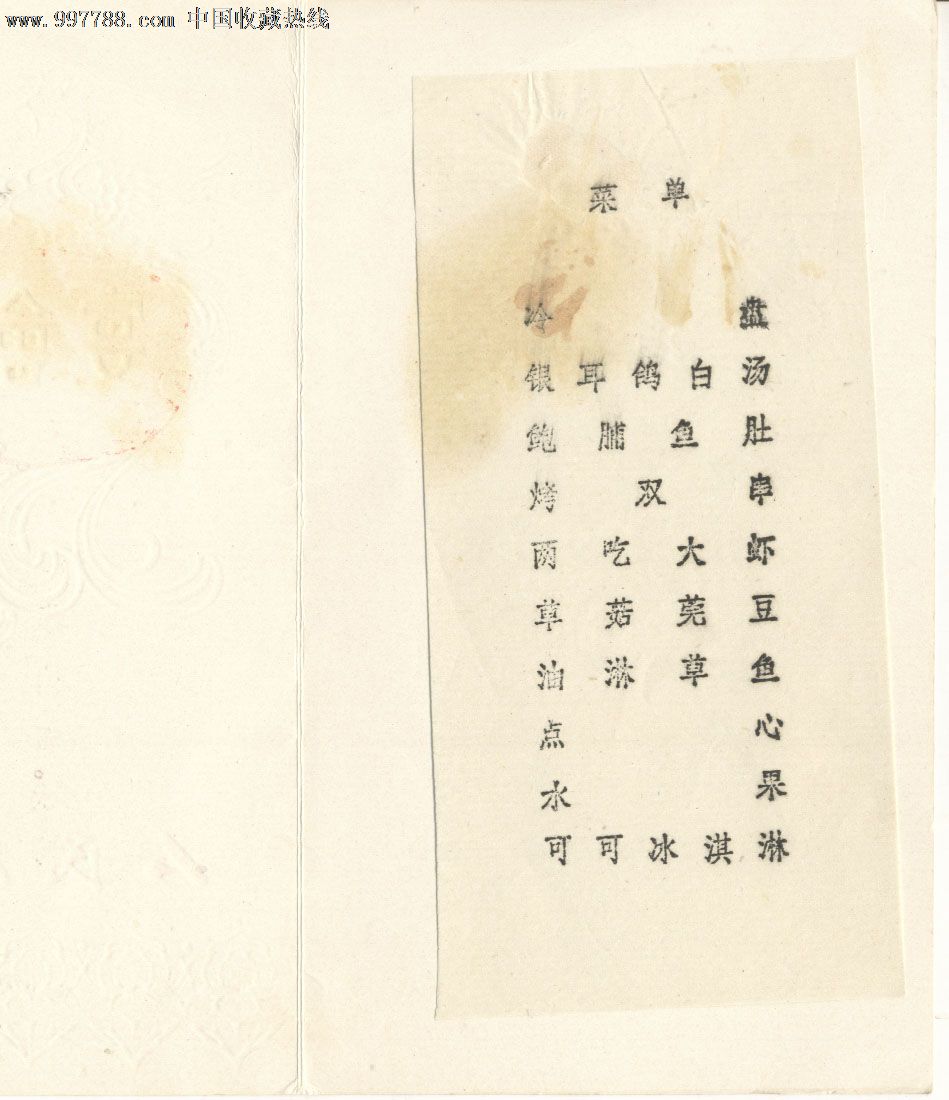 www.997788.com 中国收藏热线
菜单
冷盘
银耳鸽白汤
鲍脯鱼肚
烤双串
两吃大虾
草菇芫豆
油淋草鱼
点心
水果
可可冰淇淋